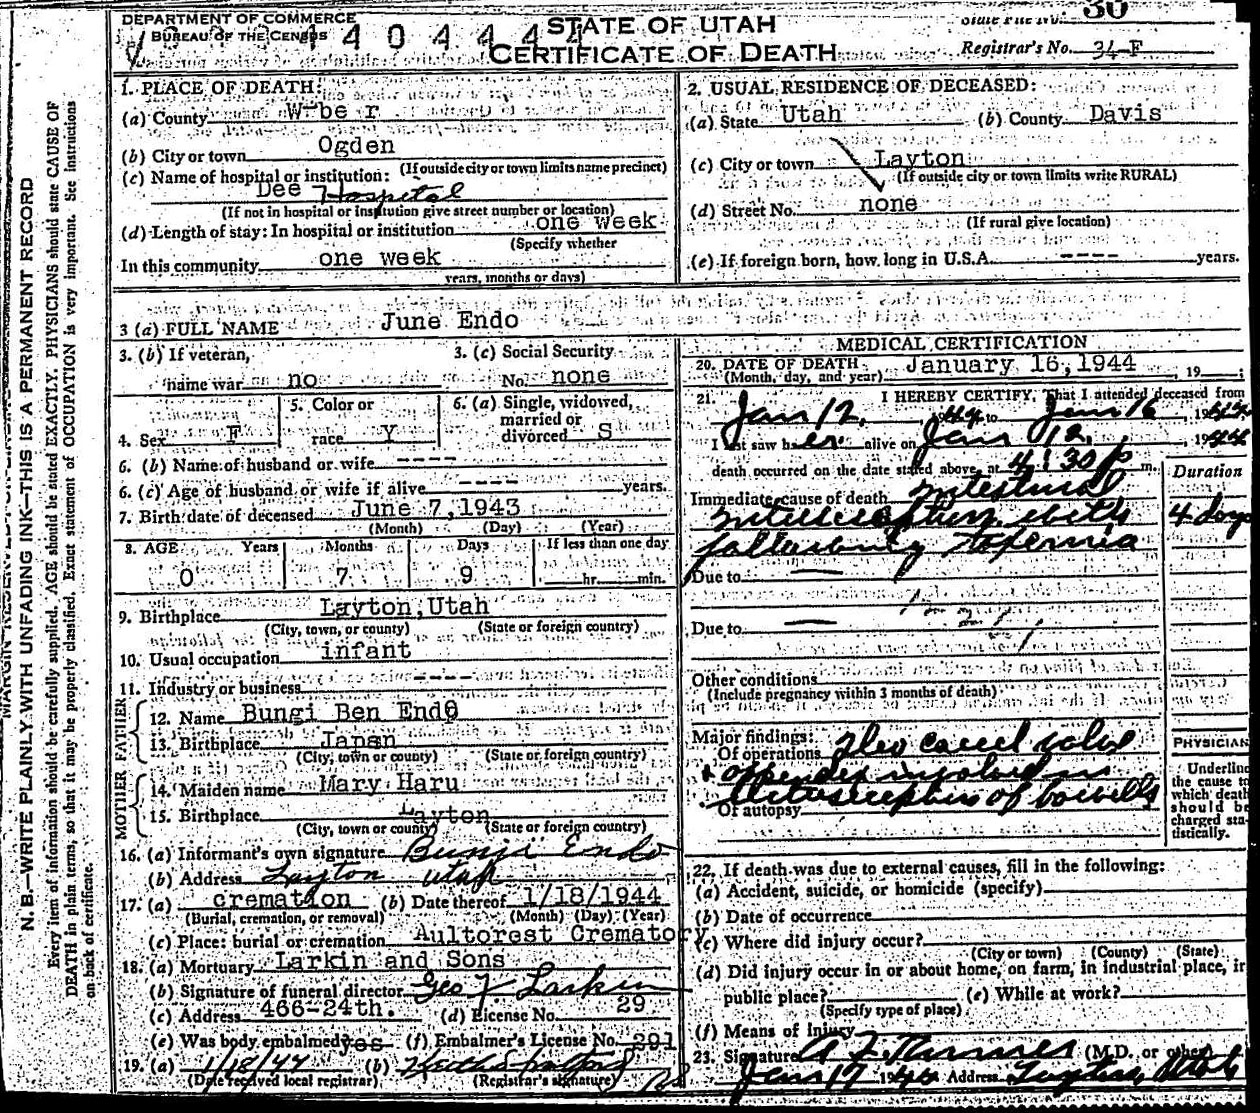 DEPARTMENT OF COMMERCE
BUREAU OF THE CENSUS
404444
STATE OF UTAH
CERTIFICATE OF DEATH
State File No. 30
Registrar's No. 34-F
MARGIN RESERVED FOR BINDING
N. B.—WRITE PLAINLY WITH UNFADING INK—THIS IS A PERMANENT RECORD
Every item of information should be carefully supplied. AGE should be stated EXACTLY. PHYSICIANS should state CAUSE OF
DEATH in plain terms, so that it may be properly classified. Exact statement of OCCUPATION is very important. See instructions
on back of certificate.
1. PLACE OF DEATH:
(a) County W-be r
(b) City or town Ogden
(If outside city or town limits name precinct)
(c) Name of hospital or institution:
Dee Hospital
(If not in hospital or institution give street number or location)
(d) Length of stay: In hospital or institution one week
(Specify whether
In this community one week
years, months or days)
2. USUAL RESIDENCE OF DECEASED:
(a) State Utah (b) County Davis
(c) City or town Layton
(If outside city or town limits write RURAL)
(d) Street No. none
(If rural give location)
(e) If foreign born, how long in U.S.A. ---- years.
3 (a) FULL NAME June Endo
3. (b) If veteran,
name war no
3. (c) Social Security
No. none
4. Sex F
5. Color or
race Y
6. (a) Single, widowed,
married or
divorced S
6. (b) Name of husband or wife ----
6. (c) Age of husband or wife if alive ---- years.
7. Birth date of deceased June 7,1943
(Month) (Day) (Year)
8. AGE Years Months Days If less than one day
0 7 9 hr. min.
9. Birthplace Layton,Utah
(City, town, or county) (State or foreign country)
10. Usual occupation infant
11. Industry or business ----
FATHER
12. Name Bungi Ben Endo
13. Birthplace Japan
(City, town or county) (State or foreign country)
MOTHER
14. Maiden name Mary Haru
15. Birthplace Layton
(City, town or county) (State or foreign country)
16. (a) Informant's own signature Bunji Endo
(b) Address Layton Utah
17. (a) cremation (b) Date thereof 1/18/1944
(Burial, cremation, or removal) (Month) (Day) (Year)
(c) Place: burial or cremation Aultorest Crematory
18. (a) Mortuary Larkin and Sons
(b) Signature of funeral director Geo J Larkin
(c) Address 466-24th. (d) License No. 29
(e) Was body embalmed yes (f) Embalmer's License No. 291
19. (a) 1/18/44 (b)
(Date received local registrar) (Registrar's signature)
MEDICAL CERTIFICATION
20. DATE OF DEATH January 16,1944, 19 ;
(Month, day, and year)
21. I HEREBY CERTIFY, That I attended deceased from
Jan 12, 1944 to Jan 16, 1944
I last saw her alive on Jan 12, 1944
death occurred on the date stated above, at 4:30 p m.
Duration
Immediate cause of death Intestinal
intussusception with 4 days
toxemia
Due to —
Due to —
Other conditions
(Include pregnancy within 3 months of death)
Major findings:
Of operations Ileo caecal valve
+ appendix involved in
intussusception of bowells
Of autopsy
PHYSICIAN
Underline
the cause to
which death
should be
charged sta-
tistically.
22. If death was due to external causes, fill in the following:
(a) Accident, suicide, or homicide (specify)
(b) Date of occurrence
(c) Where did injury occur?
(City or town) (County) (State)
(d) Did injury occur in or about home, on farm, in industrial place, in
public place? (e) While at work?
(Specify type of place)
(f) Means of Injury
23. Signature (M.D. or other)
Jan 17 Address Layton Utah